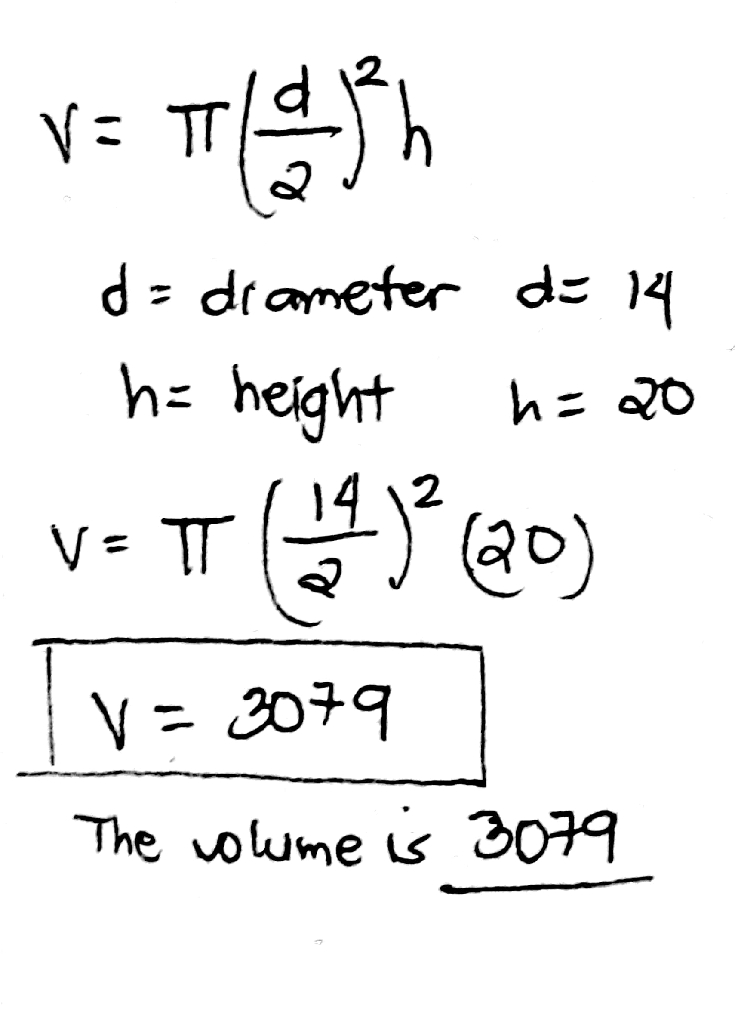 V = π(d/2)²h
d = diameter d = 14
h = height h = 20
V = π(14/2)²(20)
V = 3079
The volume is 3079